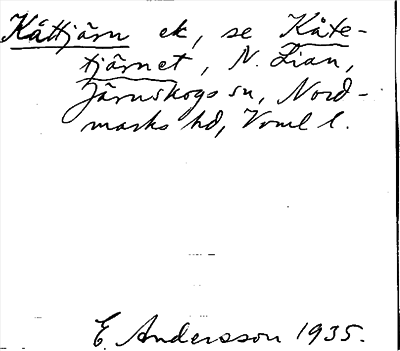 Kåttjärn ek, se Kåte-
tjärnet, N. Lian,
Järnskogs sn, Nord-
marks hd, Vrml l.
E. Andersson 1935.